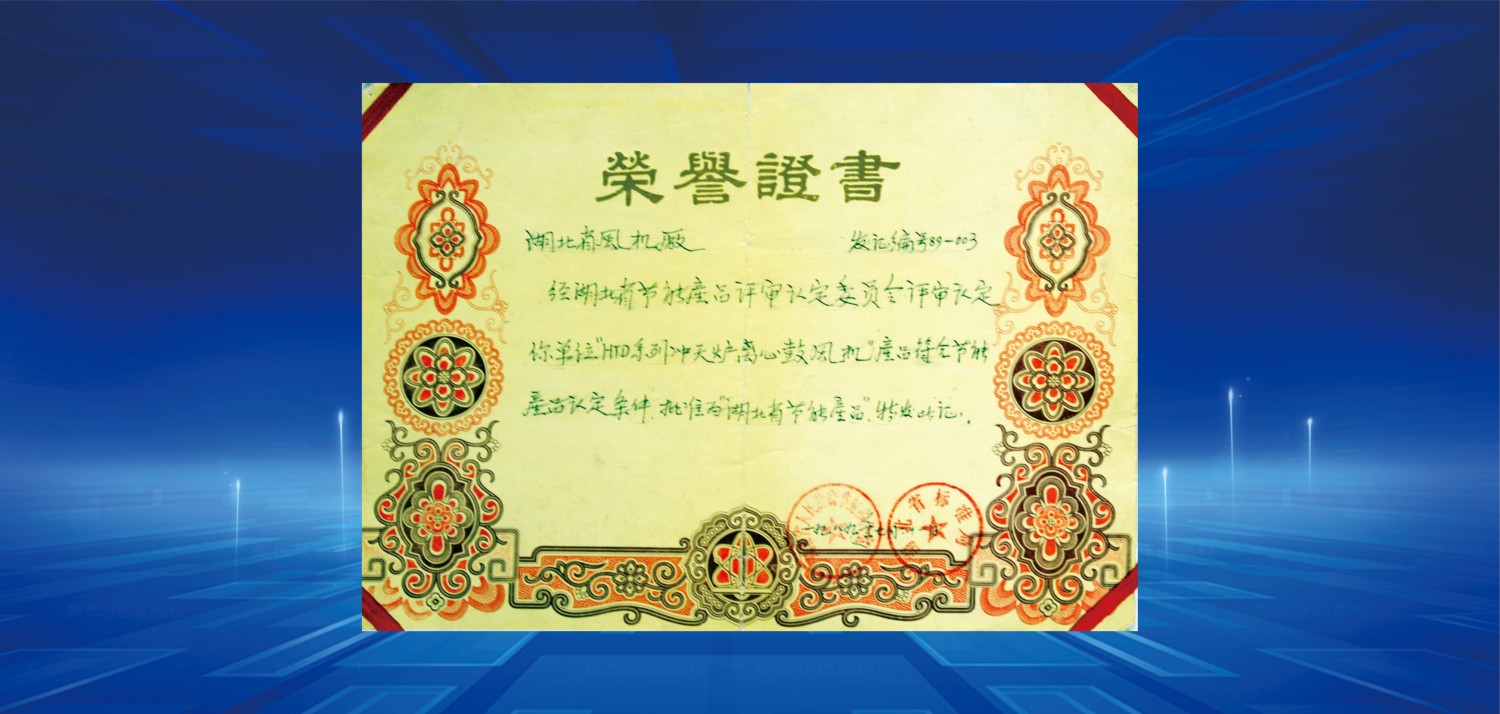 榮譽證書
湖北省風机厰
发证编号89-003
经湖北省节能產品评审认定委员会评审认定
你单位"HTD系列冲天炉离心鼓风机"產品符合节能
產品认定条件.批准为"湖北省节能產品".特发此证.
一九八九年七月
省标准局